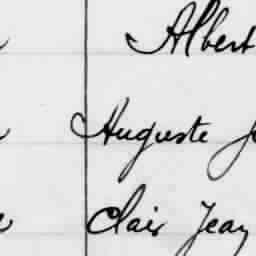 Albert
Auguste J
Clair Jean